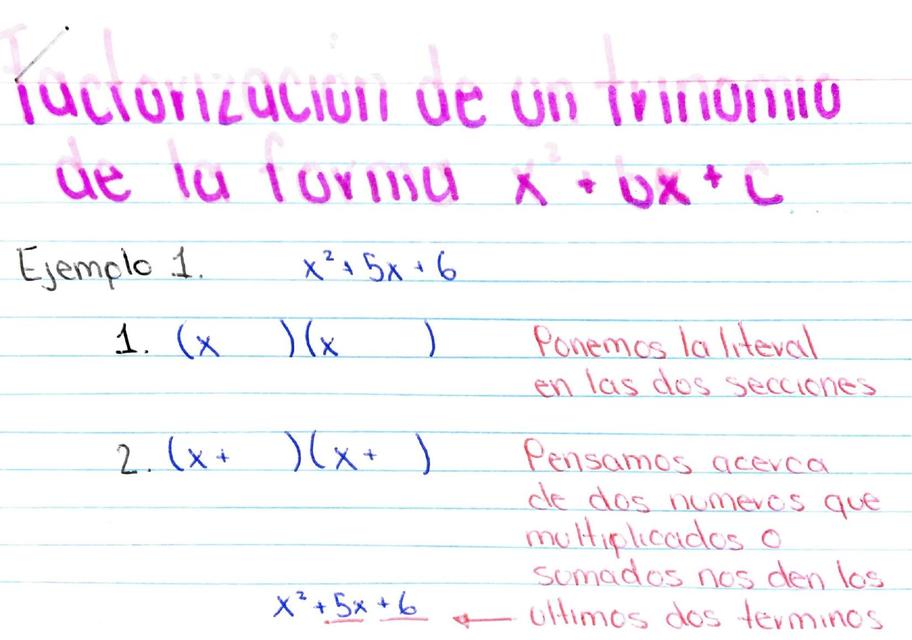 Factorización de un trinomio
de la forma x² + bx + c
Ejemplo 1. x² + 5x + 6
1. (x )(x ) Ponemos la literal
en las dos secciones
2. (x + )(x + ) Pensamos acerca
de dos numeros que
multiplicados o
sumados nos den los
x² + 5x + 6 ← ultimos dos terminos